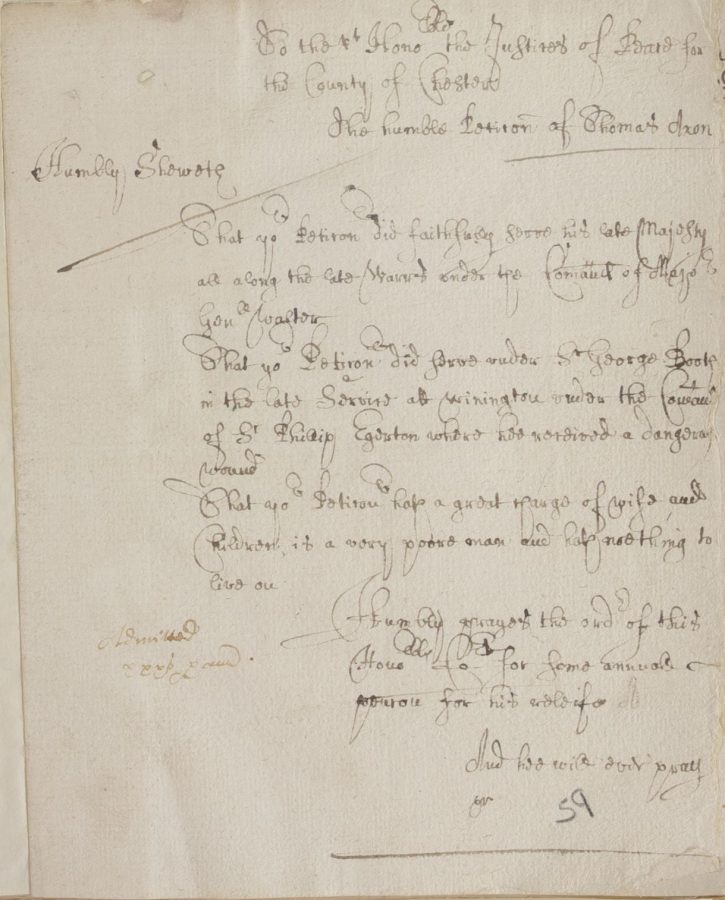 To the rt Hono:ble the Justices of Peace for
the County of Chester
The humble Peticon of Thomas Axon
Humbly Sheweth
That yor Peticonr did faithfully serve his late Majesty
all along the late Warrs under the Comaund of Majo:r
Genll Walter
That yor Peticonr did serve under Sr George Booth
in the late Service att Winington under the Comaund
of Sr Phillip Egerton where hee received a dangerus
wound
That yor Peticonr hath a great charge of wife and
Children, is a very poore man and hath noething to
live on
Humbly prayes the ordr of this
Hono:ble for some annuall
pencon for his releife
And hee will ever pray
&c
59
Admitted
xxxs p ann.